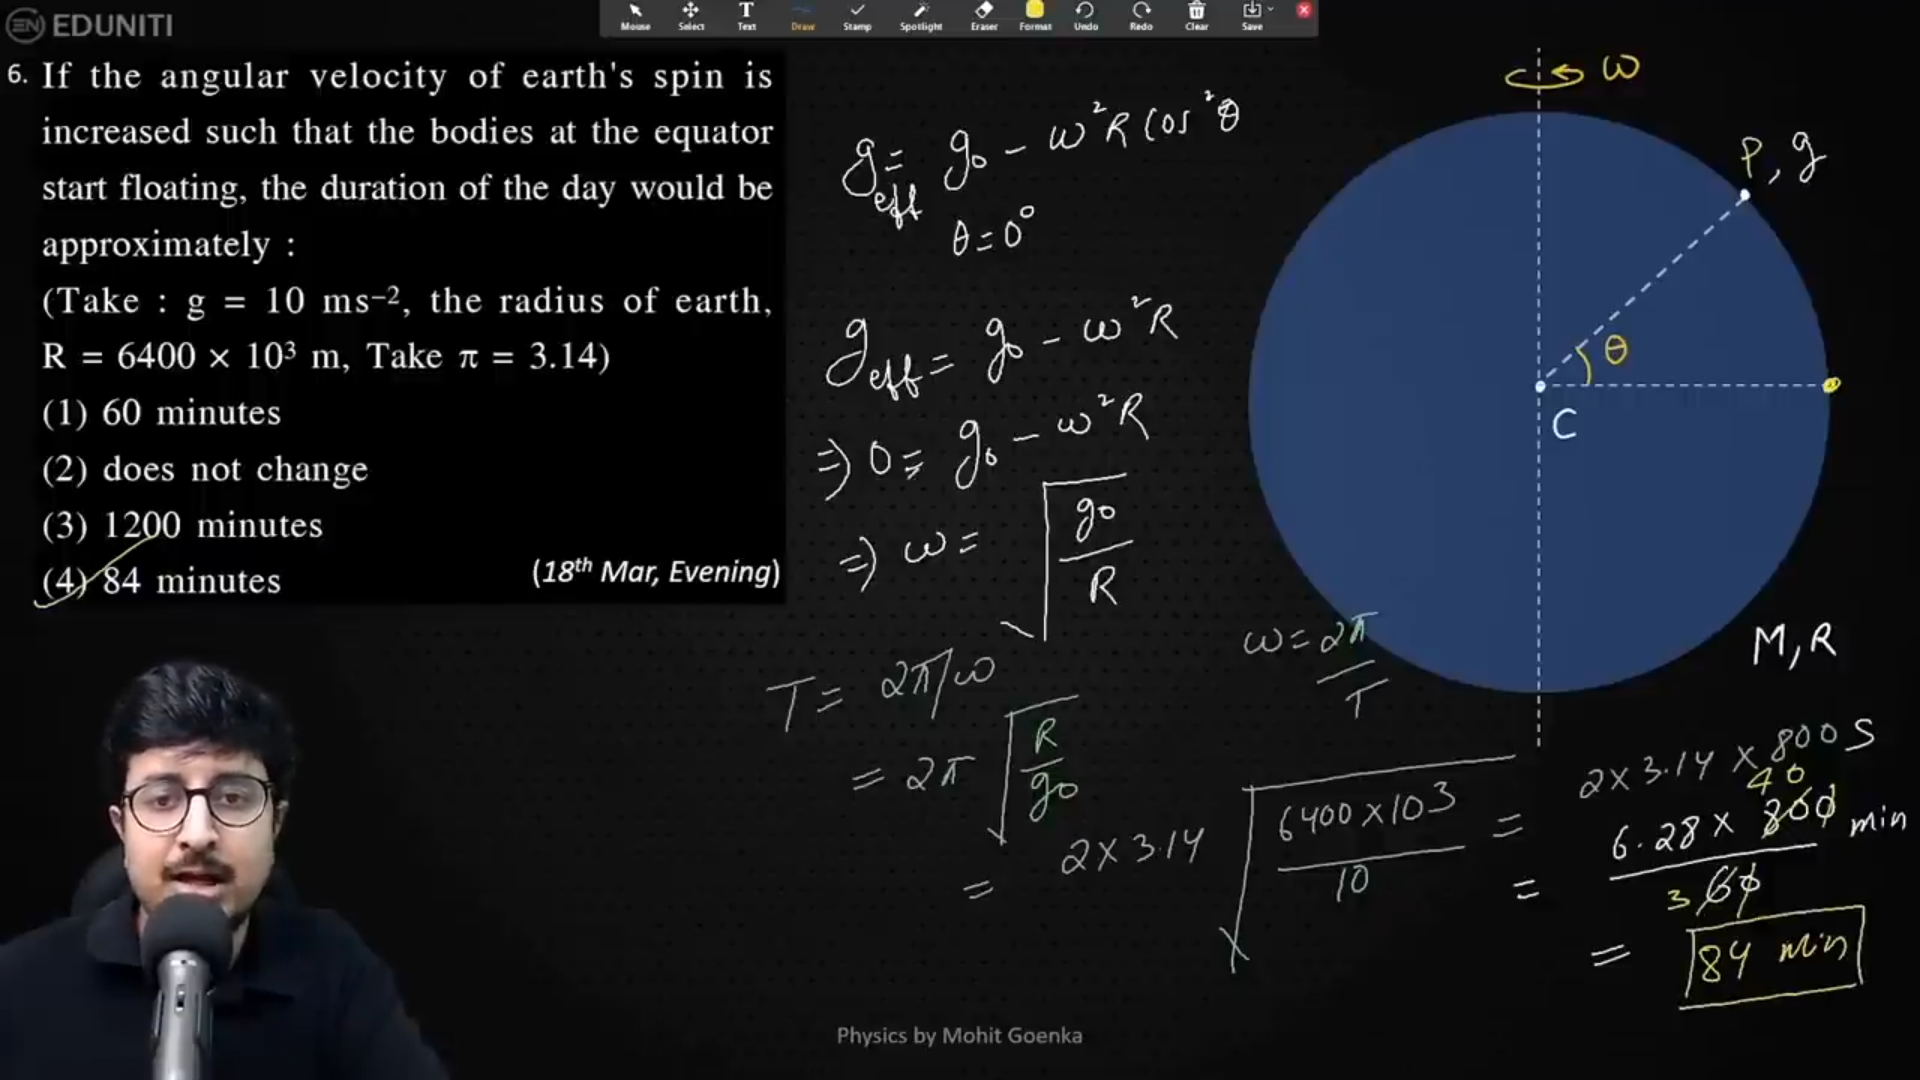 EN EDUNITI
Mouse Select Text Draw Stamp Spotlight Eraser Format Undo Redo Clear Save
6. If the angular velocity of earth's spin is
increased such that the bodies at the equator
start floating, the duration of the day would be
approximately :
(Take : g = 10 ms⁻², the radius of earth,
R = 6400 × 10³ m, Take π = 3.14)
(1) 60 minutes
(2) does not change
(3) 1200 minutes
(4) 84 minutes
(18th Mar, Evening)
g_eff = g₀ - ω²R cos²θ
θ = 0°
g_eff = g₀ - ω²R
⇒ 0 = g₀ - ω²R
⇒ ω = √(g₀/R)
T = 2π/ω
ω = 2π/T
= 2π √(R/g₀)
= 2 × 3.14 √(6400 × 10³/10) = 2 × 3.14 × 800 S
= 6.28 × 800/60 min
40
3
= 84 min
ω
P, g
θ
C
M, R
Physics by Mohit Goenka